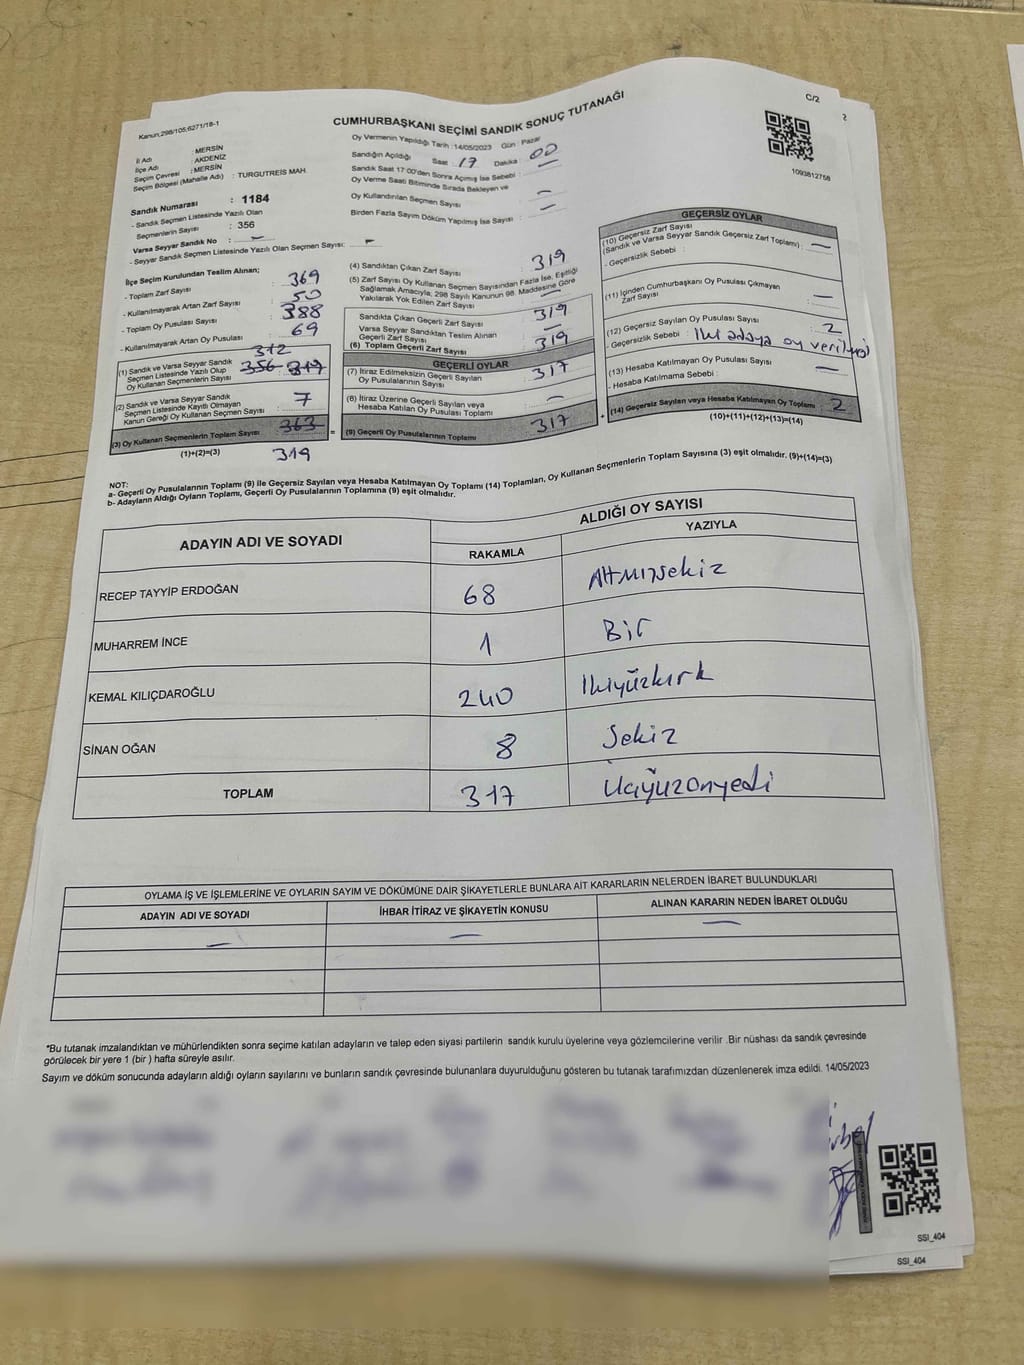 C/2
2
Kanun;298/105;6271/18-1
CUMHURBAŞKANI SEÇİMİ SANDIK SONUÇ TUTANAĞI
İl Adı : MERSİN
İlçe Adı : AKDENİZ
Seçim Çevresi : MERSİN
Seçim Bölgesi (Mahalle Adı) : TURGUTREİS MAH.
Sandık Numarası : 1184
- Sandık Seçmen Listesinde Yazılı Olan
Seçmenlerin Sayısı : 356
Varsa Seyyar Sandık No : –
- Seyyar Sandık Seçmen Listesinde Yazılı Olan Seçmen Sayısı: –
İlçe Seçim Kurulundan Teslim Alınan;
- Toplam Zarf Sayısı : 369
- Kullanılmayarak Artan Zarf Sayısı : 50
- Toplam Oy Pusulası Sayısı : 388
- Kullanılmayarak Artan Oy Pusulası : 69
312
(1) Sandık ve Varsa Seyyar Sandık
Seçmen Listesinde Yazılı Olup
Oy Kullanan Seçmenlerin Sayısı : 356 319
(2) Sandık ve Varsa Seyyar Sandık
Seçmen Listesinde Kayıtlı Olmayan
Kanun Gereği Oy Kullanan Seçmen Sayısı : 7
(3) Oy Kullanan Seçmenlerin Toplam Sayısı 363 =
(1)+(2)=(3) 319
Oy Vermenin Yapıldığı Tarih :14/05/2023 Gün : Pazar
Sandığın Açıldığı Saat : 17 Dakika : 00
Sandık Saat 17:00'den Sonra Açılmış İse Sebebi : –
Oy Verme Saati Bitiminde Sırada Bekleyen ve
Oy Kullandırılan Seçmen Sayısı : –
Birden Fazla Sayım Döküm Yapılmış İse Sayısı : –
(4) Sandıktan Çıkan Zarf Sayısı : 319
(5) Zarf Sayısı Oy Kullanan Seçmen Sayısından Fazla İse, Eşitliği
Sağlamak Amacıyla; 298 Sayılı Kanunun 98. Maddesine Göre
Yakılarak Yok Edilen Zarf Sayısı : –
Sandıkta Çıkan Geçerli Zarf Sayısı : 319
Varsa Seyyar Sandıktan Teslim Alınan
Geçerli Zarf Sayısı : –
(6) Toplam Geçerli Zarf Sayısı : 319
GEÇERLİ OYLAR
(7) İtiraz Edilmeksizin Geçerli Sayılan
Oy Pusulalarının Sayısı : 317
(8) İtiraz Üzerine Geçerli Sayılan veya
Hesaba Katılan Oy Pusulası Toplamı : –
(9) Geçerli Oy Pusulalarının Toplamı : 317 +
1093812758
GEÇERSİZ OYLAR
(10) Geçersiz Zarf Sayısı
(Sandık ve Varsa Seyyar Sandık Geçersiz Zarf Toplamı) : –
- Geçersizlik Sebebi :
(11) İçinden Cumhurbaşkanı Oy Pusulası Çıkmayan
Zarf Sayısı : –
(12) Geçersiz Sayılan Oy Pusulası Sayısı : 2
- Geçersizlik Sebebi : İki adaya oy verilmesi
(13) Hesaba Katılmayan Oy Pusulası Sayısı : –
- Hesaba Katılmama Sebebi :
(14) Geçersiz Sayılan veya Hesaba Katılmayan Oy Toplamı : 2
(10)+(11)+(12)+(13)=(14)
NOT:
a- Geçerli Oy Pusulasının Toplamı (9) ile Geçersiz Sayılan veya Hesaba Katılmayan Oy Toplamı (14) Toplamları, Oy Kullanan Seçmenlerin Toplam Sayısına (3) eşit olmalıdır. (9)+(14)=(3)
b- Adayların Aldığı Oyların Toplamı, Geçerli Oy Pusulalarının Toplamına (9) eşit olmalıdır.
ADAYIN ADI VE SOYADI
ALDIĞI OY SAYISI
RAKAMLA YAZIYLA
RECEP TAYYİP ERDOĞAN 68 Altmışsekiz
MUHARREM İNCE 1 Bir
KEMAL KILIÇDAROĞLU 240 İkiyüzkırk
SİNAN OĞAN 8 Sekiz
TOPLAM 317 Üçyüzonyedi
OYLAMA İŞ VE İŞLEMLERİNE VE OYLARIN SAYIM VE DÖKÜMÜNE DAİR ŞİKAYETLERLE BUNLARA AİT KARARLARIN NELERDEN İBARET BULUNDUKLARI
ADAYIN ADI VE SOYADI İHBAR İTİRAZ VE ŞİKAYETİN KONUSU ALINAN KARARIN NEDEN İBARET OLDUĞU
– – –
*Bu tutanak imzalandıktan ve mühürlendikten sonra seçime katılan adayların ve talep eden siyasi partilerin sandık kurulu üyelerine veya gözlemcilerine verilir .Bir nüshası da sandık çevresinde
görülecek bir yere 1 (bir ) hafta süreyle asılır.
Sayım ve döküm sonucunda adayların aldığı oyların sayılarını ve bunların sandık çevresinde bulunanlara duyurulduğunu gösteren bu tutanak tarafımızdan düzenlenerek imza edildi. 14/05/2023
SSI_404
SSI_404